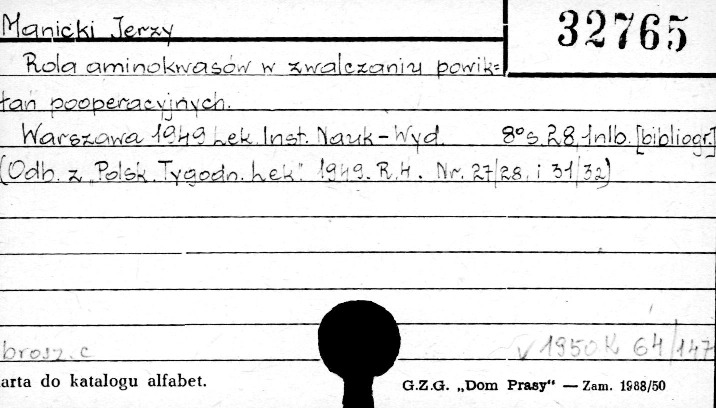 Manicki Jerzy
32765
Rola aminokwasów w zwalczaniu powik=
łań pooperacyjnych.
Warszawa 1949 Lek. Inst. Nauk-Wyd. 8° s. 28, 1 nlb. [bibliogr.]
(Odb. z „Polsk. Tygodn. Lek". 1949. R. 4. Nr. 27/28 i 31/32)
brosz. c
v 1950 K 64/147
arta do katalogu alfabet.
G.Z.G. „Dom Prasy“ — Zam. 1988/50